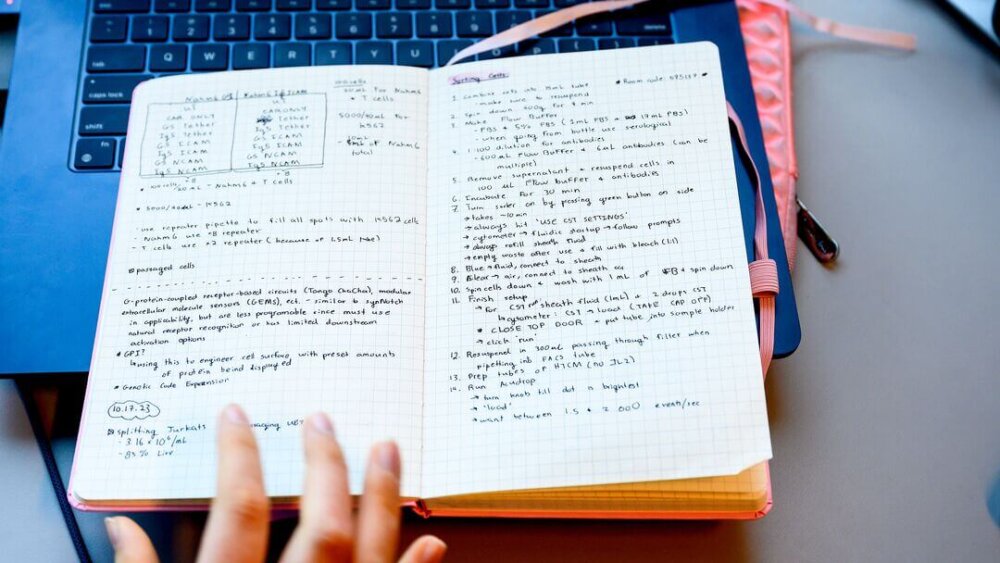 Nahm6 I♀ICAM
UT
UT
CAR ONLY
CAR ONLY
GS Tether
Tether
IgS Tether
IgS Tether
GS ICAM
GS ICAM
IgS ICAM
IgS ICAM
GS NCAM
GS NCAM
IgS NCAM
IgS NCAM
for Nahm6
+ T cells
5000/40mL for
K562
of Nahm6
total
- Nahm6 + T Cells
- K562
- use repeater pipette to fill all spots with K562 cells
- Nahm6 use ×8 repeater
- T cells are ×2 repeater (because of 1.5mL tube)
passaged cells
G-protein-coupled receptor-based circuits (Tango ChaCha), modular
extracellular molecule sensors (GEMS), ect. - similar to synNotch
in applicability, but are less programable since must use
natural receptor recognition or has limited downstream
activation options
* GPI?
↳ using this to engineer cell surface with preset amounts
of protein being displayed
* Genetic Code Expansion
10.17.23
Splitting Jurkats
- 3.16 × 10⁶/mL
- 85% Live
Sorting Cells:
* Room code:
1. Combine cells into 15mL tube
- make sure to resuspend
2. Spin down 400g for 4 min
3. Make Flow Buffer
- PBS + 5% FBS (1mL FBS + 17mL PBS)
- when going from bottle use serological
4. 1:100 dilution for antibodies
- 600uL Flow Buffer + 6uL antibodies (can be
multiple)
5. Remove supernatant + resuspend cells in
100 uL Flow buffer + antibodies
6. Incubate for 30 min
7. Turn sorter on by pressing green button on side
→ takes ~10min
→ always hit 'USE CST SETTINGS'
→ cytometer → fluidic startup → follow prompts
→ always refill sheath fluid
→ empty waste after use + fill with bleach (1:1)
8. Blue → fluid, connect to sheath
9. Clear → air, connect to sheath
10. Spin cells down + wash with 1mL of FB + spin down
11. Finish setup
→ for CST → sheath fluid (1mL) + 2 drops CST
↳ cytometer: CST → load (TAKE CAP OFF)
* CLOSE TOP DOOR + put tube into sample holder
→ click 'run'
12. Resuspend in 300uL passing through filter when
pipetting into FACS tube
13. Prep tubes of HTCM (no IL2)
14. Run Accudrop
→ turn knob till dot is brightest
→ 'load'
→ want between 1.5 + 2,000 events/sec